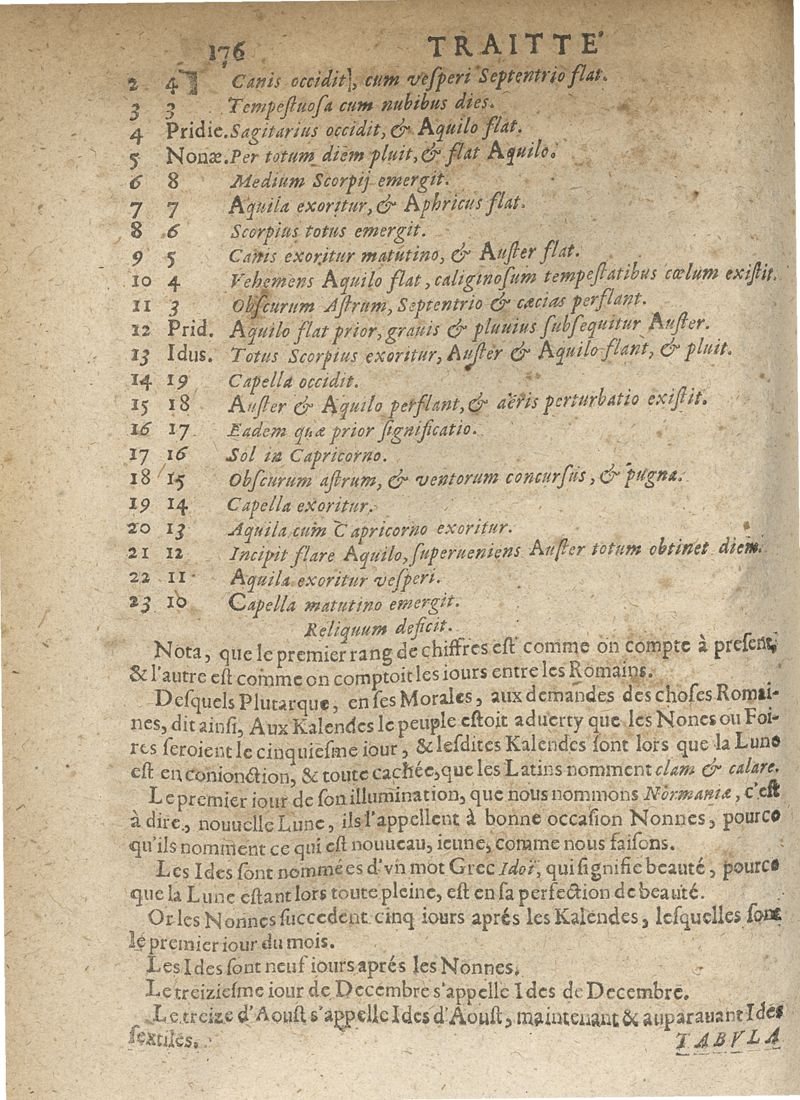 176 TRAITTE'
2 4 Canis occidit, cum veſperi Septentrio flat.
3 3 Tempeſtuoſa cum nubibus dies.
4 Pridie. Sagitarius occidit, & Aquilo flat.
5 Nonæ. Per totum diem pluit, & flat Aquilo.
6 8 Medium Scorpij emergit.
7 7 Aquila exoritur, & Aphricus flat.
8 6 Scorpius totus emergit.
9 5 Canis exoritur matutino, & Auſter flat.
10 4 Vehemens Aquilo flat, caliginoſum tempeſtatibus cœlum exiſtit.
11 3 Obſcurum Aſtrum, Septentrio & cæcias perflant.
12 Prid. Aquilo flat prior, grauis & pluuius ſubſequitur Auſter.
13 Idus. Totus Scorpius exoritur, Auſter & Aquilo flant, & pluit.
14 19 Capella occidit.
15 18 Auſter & Aquilo perflant, & aëris perturbatio exiſtit.
16 17 Eadem quæ prior ſignificatio.
17 16 Sol in Capricorno.
18 15 Obſcurum aſtrum, & ventorum concurſus, & pugna.
19 14 Capella exoritur.
20 13 Aquila cum Capricorno exoritur.
21 12 Incipit flare Aquilo, ſuperueniens Auſter totum obtinet diem.
22 11 Aquila exoritur veſperi.
23 10 Capella matutino emergit.
Reliquum deficit.
Nota, que le premier rang de chiffres eſt comme on compte à preſent,
& l'autre eſt comme on comptoit les iours entre les Romains.
Deſquels Plutarque, en ſes Morales, aux demandes des choſes Romai-
nes, dit ainſi, Aux Kalendes le peuple eſtoit aduerty que les Nones ou Foi-
res ſeroient le cinquieſme iour, & leſdites Kalendes ſont lors que la Lune
eſt en conionction, & toute cachée, que les Latins nomment clam & calare.
Le premier iour de ſon illumination, que nous nommons Normaniæ, c'eſt
à dire, nouuelle Lune, ils l'appellent à bonne occaſion Nonnes, pource
qu'ils nomment ce qui eſt nouueau, ieune, comme nous faiſons.
Les Ides ſont nommées d'vn mot Grec Idoï, qui ſignifie beauté, pource
que la Lune eſtant lors toute pleine, eſt en ſa perfection de beauté.
Or les Nonnes ſuccedent cinq iours aprés les Kalendes, leſquelles ſont
le premier iour du mois.
Les Ides ſont neuf iours aprés les Nonnes.
Le treizieſme iour de Decembre s'appelle Ides de Decembre.
Le treize d'Aouſt s'appelle Ides d'Aouſt, maintenant & auparauant Ides
ſextiles. TABVLA